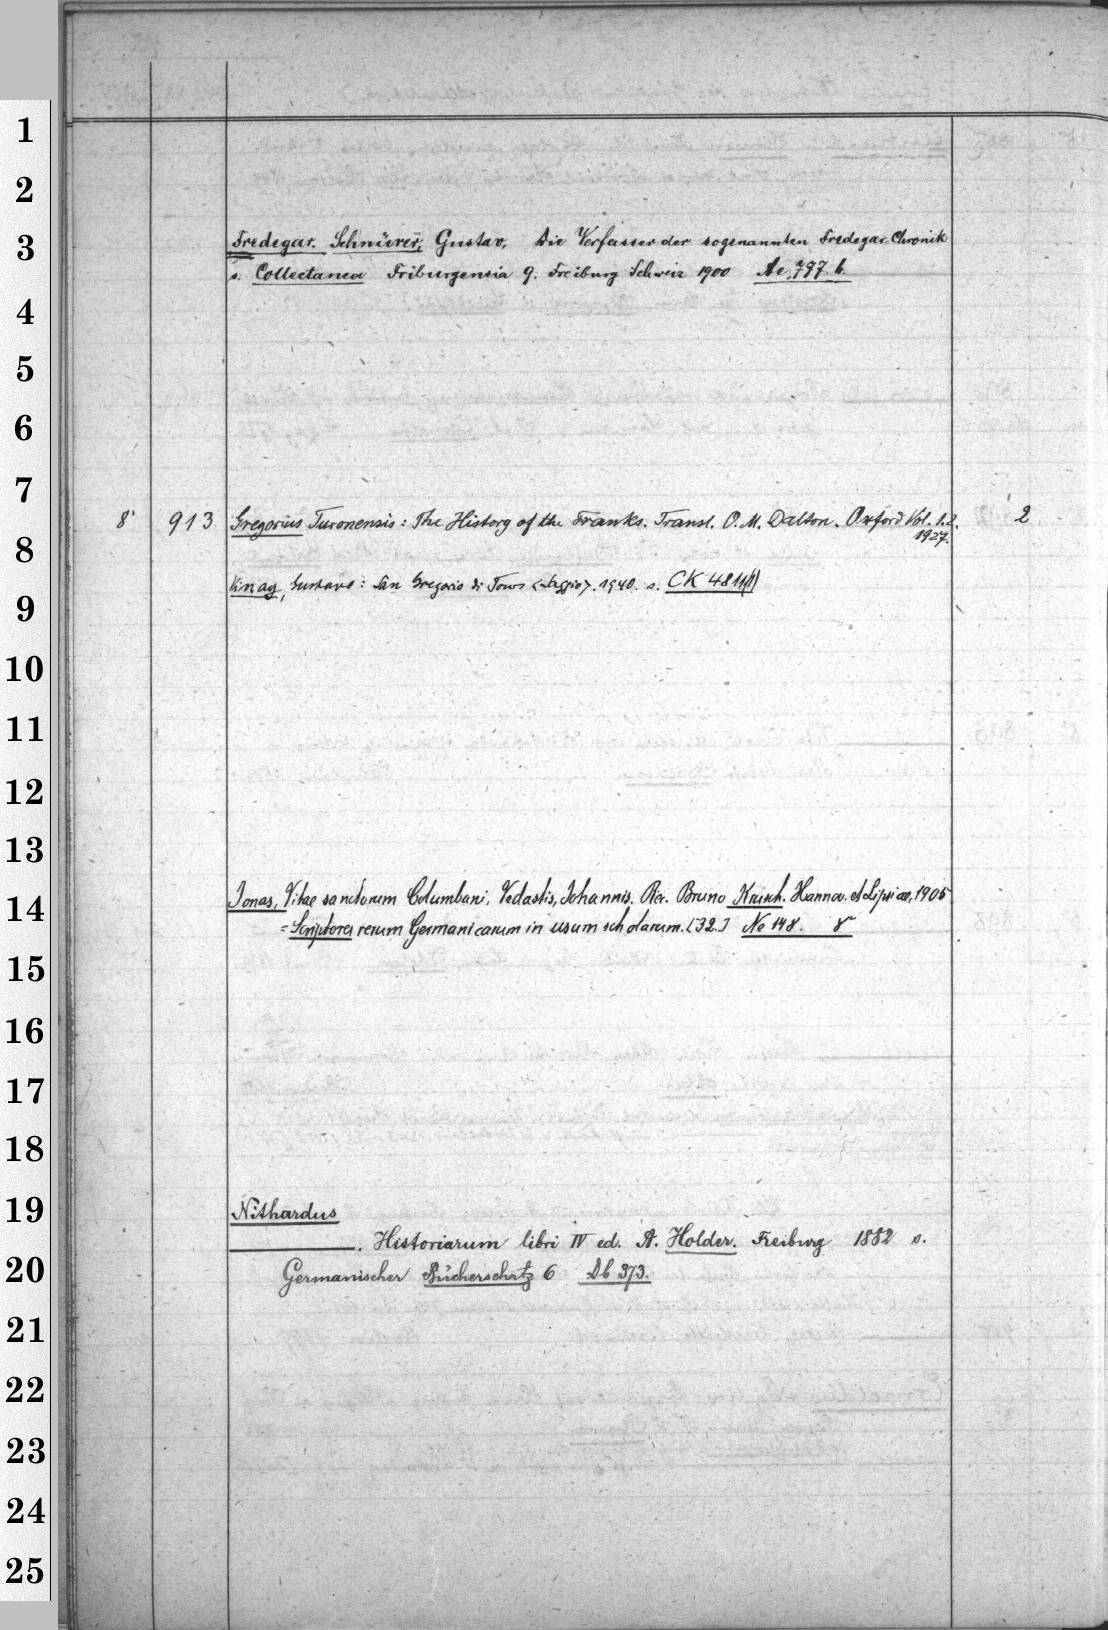 1
2
3
4
5
6
7
8
9
10
11
12
13
14
15
16
17
18
19
20
21
22
23
24
25
Fredegar. Schnürer, Gustav, Die Verfasser der sogenannten Fredegar Chronik
s. Collectanea Friburgensia 9. Freiburg Schweiz 1900 Ae 797 b.
8° 913 Gregorius Turonensis: The History of the Franks. Transl. O. M. Dalton. Oxford Vol. 1.2. 2
1927.
Vinay, Gustavo: San Gregorio di Tours <Saggio>. 1940. s. CK 4811(1)
Jonas, Vitae sanctorum Columbani, Vedastis, Johannis. Rec. Bruno Krusch. Hannov. et Lipsiae, 1905
= Scriptores rerum Germanicarum in usum scholarum. [32.] Ne 148. 8°
Nithardus
. Historiarum libri IV ed. A. Holder. Freiburg 1882 s.
Germanischer Bücherschatz 6 Db 373.